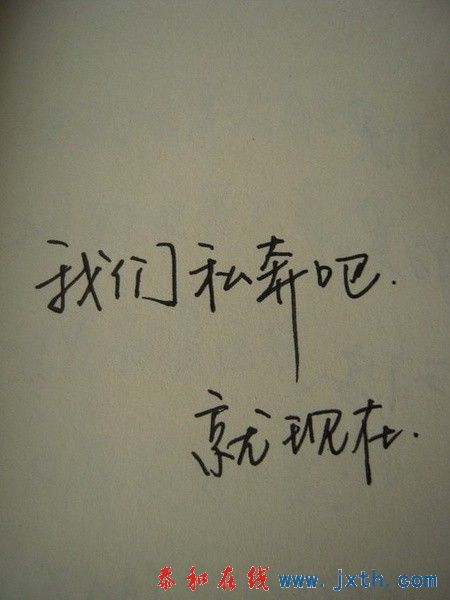 我们私奔吧.
就现在.
泰和在线 www.jxth.com